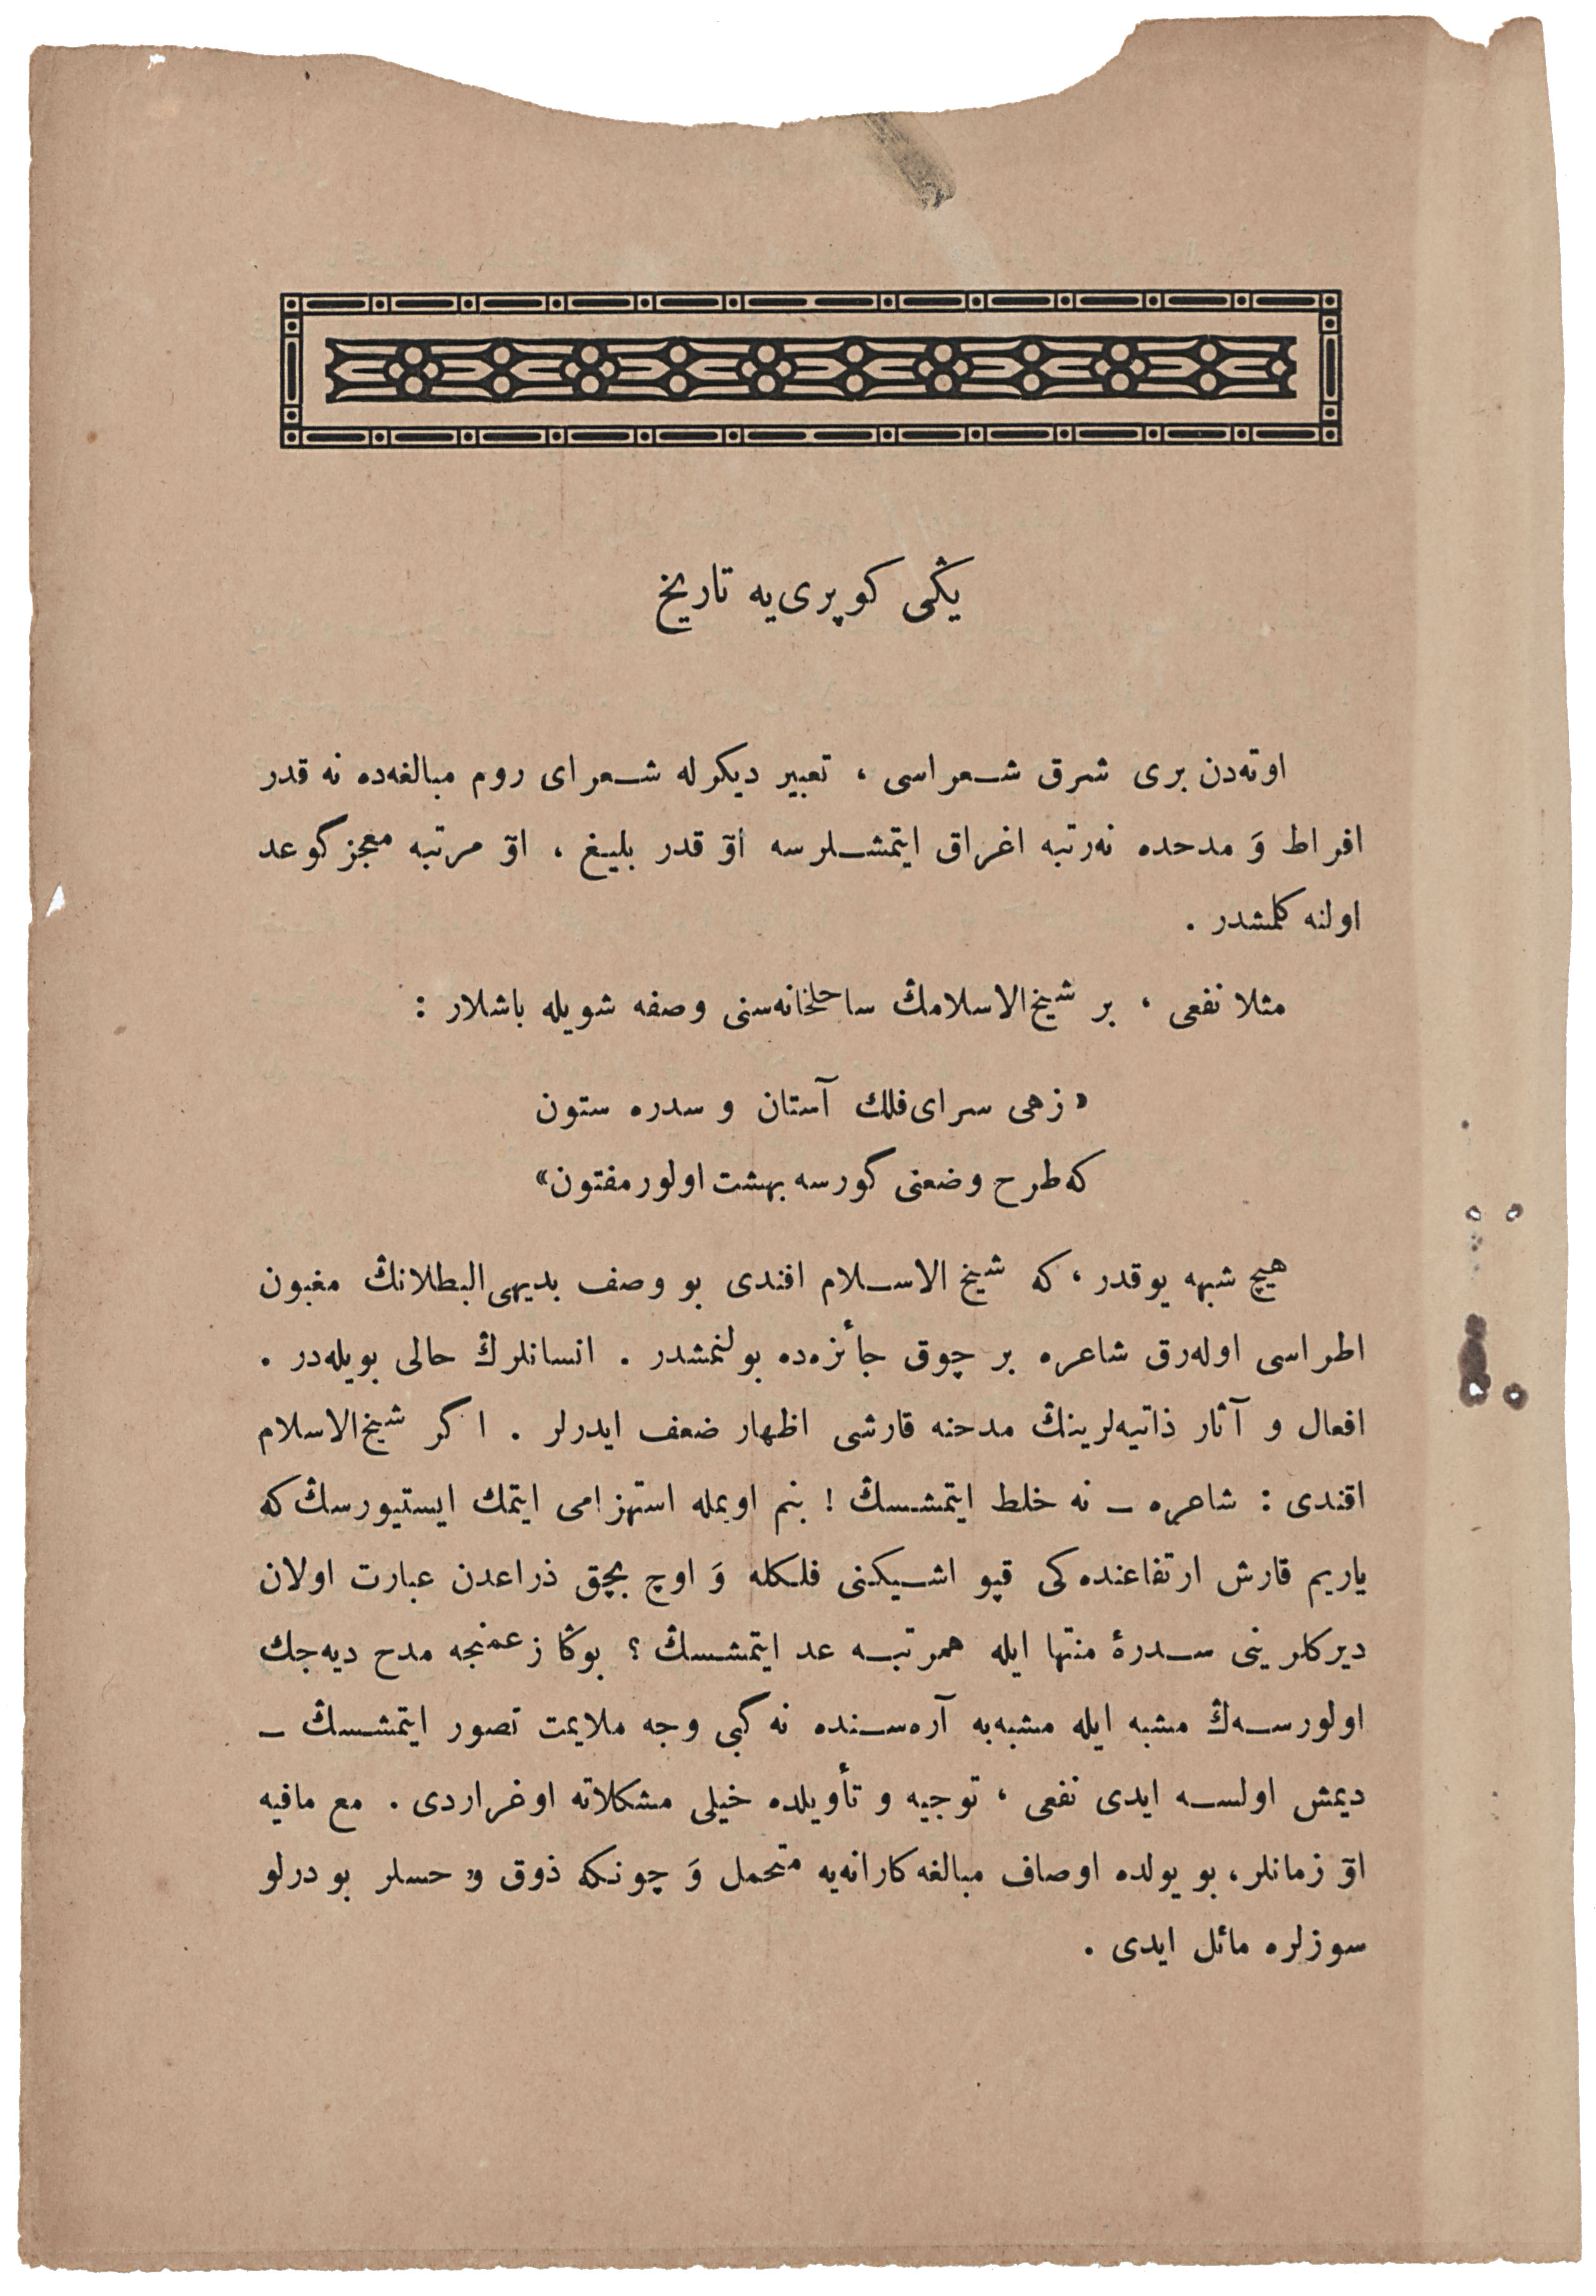 یڭی کوپری‌یه تاریخ
اوته‌دن بری شرق شعراسی ، تعبیر دیکرله شعرای روم مبالغه‌ده نه قدر
افراط وَ مدحده نه‌رتبه اغراق ایتمشلرسه اوٓ قدر بلیغ ، اوٓ مرتبه معجزکو عد
اولنه کلمشدر .
مثلا نفعی ، بر شیخ‌الاسلامڭ ساحلخانه‌سنی وصفه شویله باشلار :
« زهی سرای‌فلك آستان و سدره ستون
که‌طرح وضعنی گورسه بهشت اولور مفتون»
هیچ شبهه یوقدر ، که شیخ الاسلام افندی بو وصف بدیهی‌البطلانڭ مغبون
اطراسی اوله‌رق شاعره بر چوق جأئزه‌ده بولنمشدر . انسانلرڭ حالی بویله‌در .
افعال و آثار ذاتیه‌لرینڭ مدحنه قارشی اظهار ضعف ایدرلر . اکر شیخ‌الاسلام
افندی : شاعره ـ نه خلط ایتمشسڭ ! بنم اویمله استهزامی ایتمك ایستیورسڭ‌که
یاریم قارش ارتفاعنده‌کی قپو اشیکنی فلکله وَ اوچ بچق ذراعدن عبارت اولان
دیرکلرینی سدرهٔ منتها ایله همرتبه عد ایتمشسڭ ؟ بوڭا زعمنجه مدح دیه‌جك
اولورسه‌ڭ مشبه ایله مشبه‌به آره‌سنده نه کبی وجه ملایمت تصور ایتمشسڭ ـ
دیمش اولسه ایدی نفعی ، توجیه و تأویلده خیلی مشکلاته اوغراردی . مع مافیه
اوٓ زمانلر ، بو یولده اوصاف مبالغه‌کارانه‌یه متحمل وَ چونکه ذوق و حسلر بو درلو
سوزلره مائل ایدی .